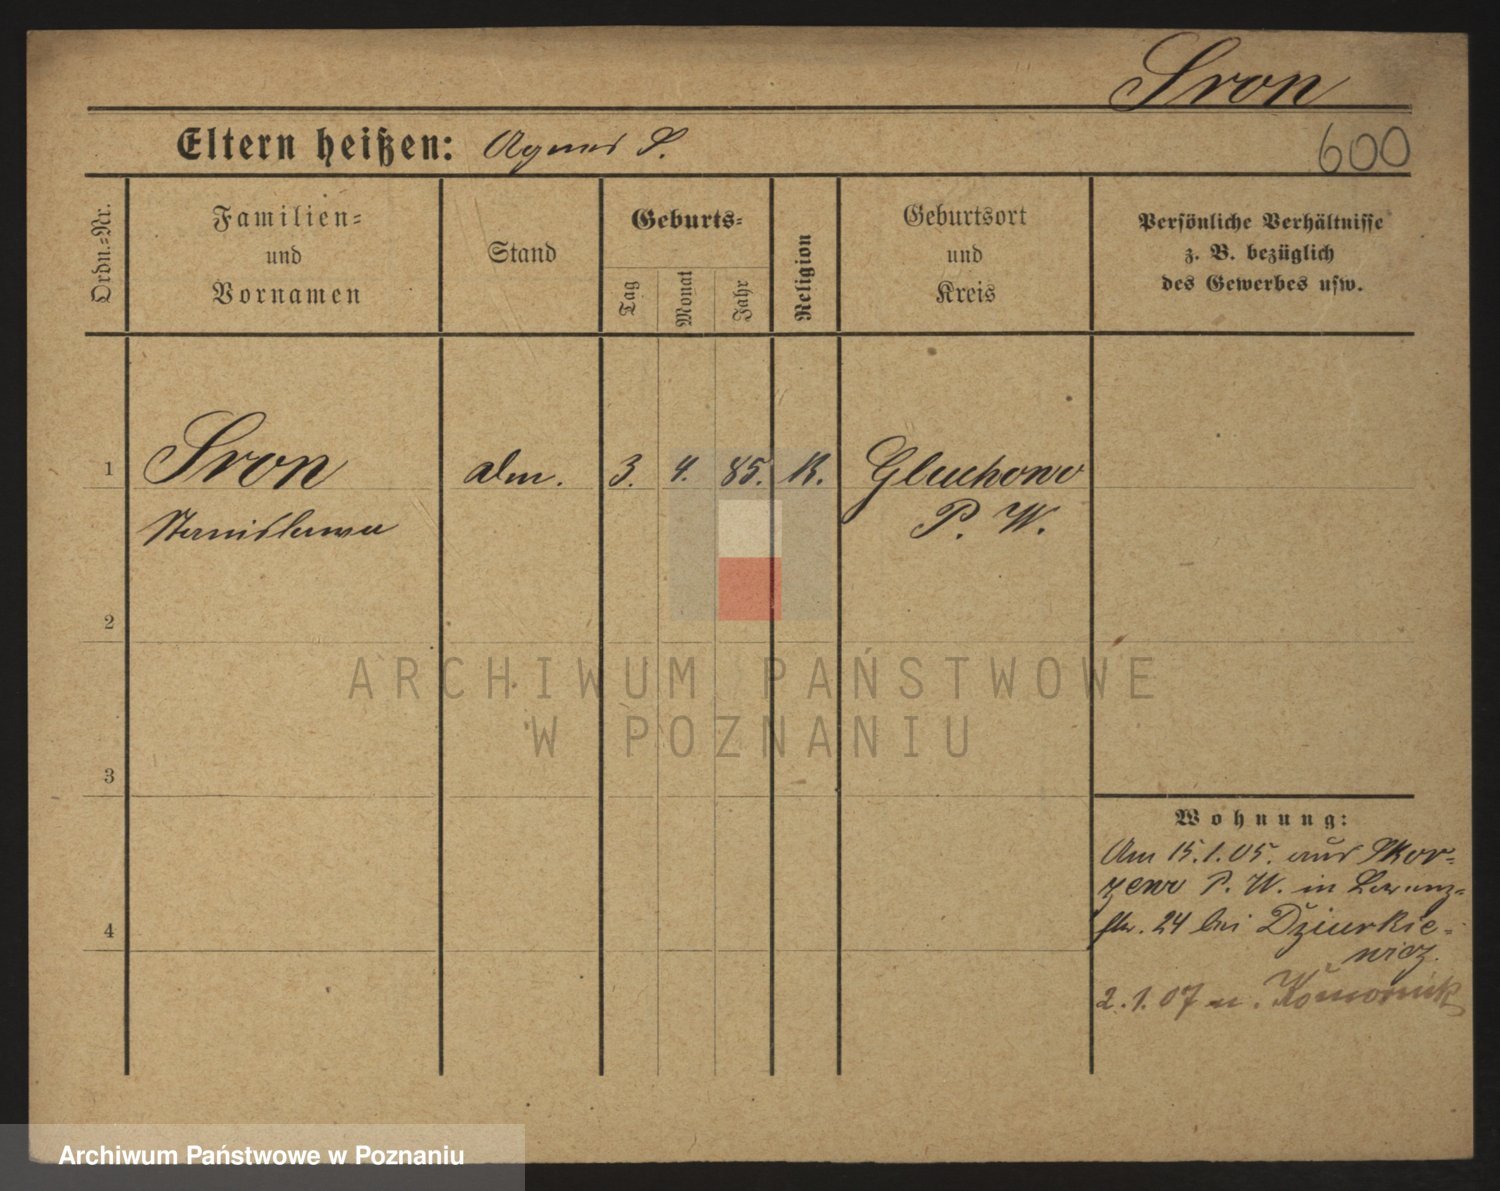 Sron
Eltern heißen: Agnes S.
600
Ordn.=Nr.
Familien=
und
Vornamen
Stand
Geburts=
Tag
Monat
Jahr
Religion
Geburtsort
und
Kreis
Persönliche Verhältnisse
z. B. bezüglich
des Gewerbes usw.
1
Sron
Stanislawa
3. 4. 85. K.
Gluchowo
P. W.
2
ARCHIWUM PAŃSTWOWE
W POZNANIU
3
Wohnung:
Am 15.1.05. aus Skor=
zewo P. W. in
24 bei Dziurkie=
wicz.
4
2.1.07 n. Komornik
Archiwum Państwowe w Poznaniu